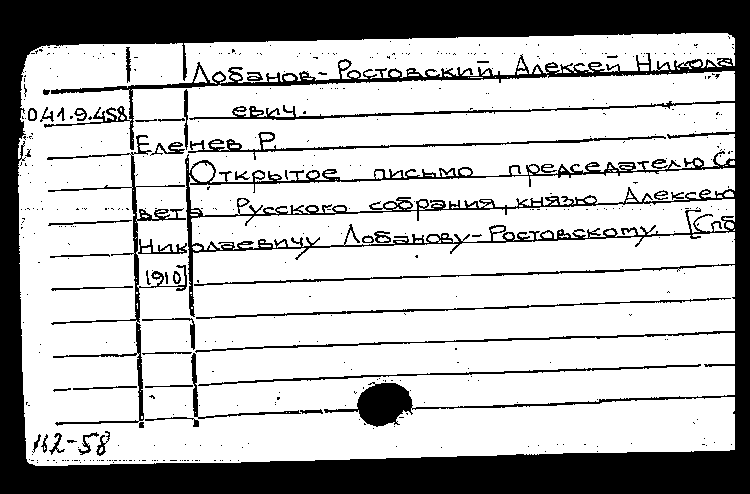 Лобанов-Ростовский, Алексей Никола
041.9.458 евич.
Еленев Р.
Открытое письмо председателю Со
вета Русского собрания, князю Алексею
Николаевичу Лобанову-Ростовскому. [Спб
1910].
112-58